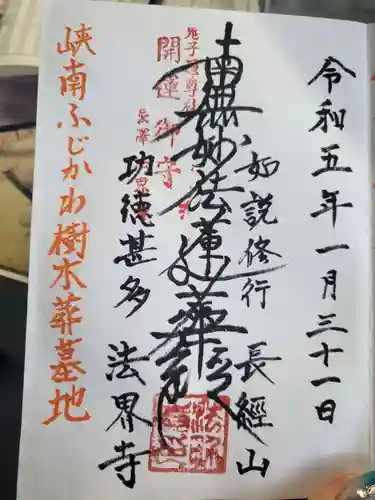 令和五年一月三十一日
如説修行 長經山
南無妙法蓮華経
功徳甚多 法界寺
鬼子母尊神
開運御守
峡南ふじかわ樹木葬墓地